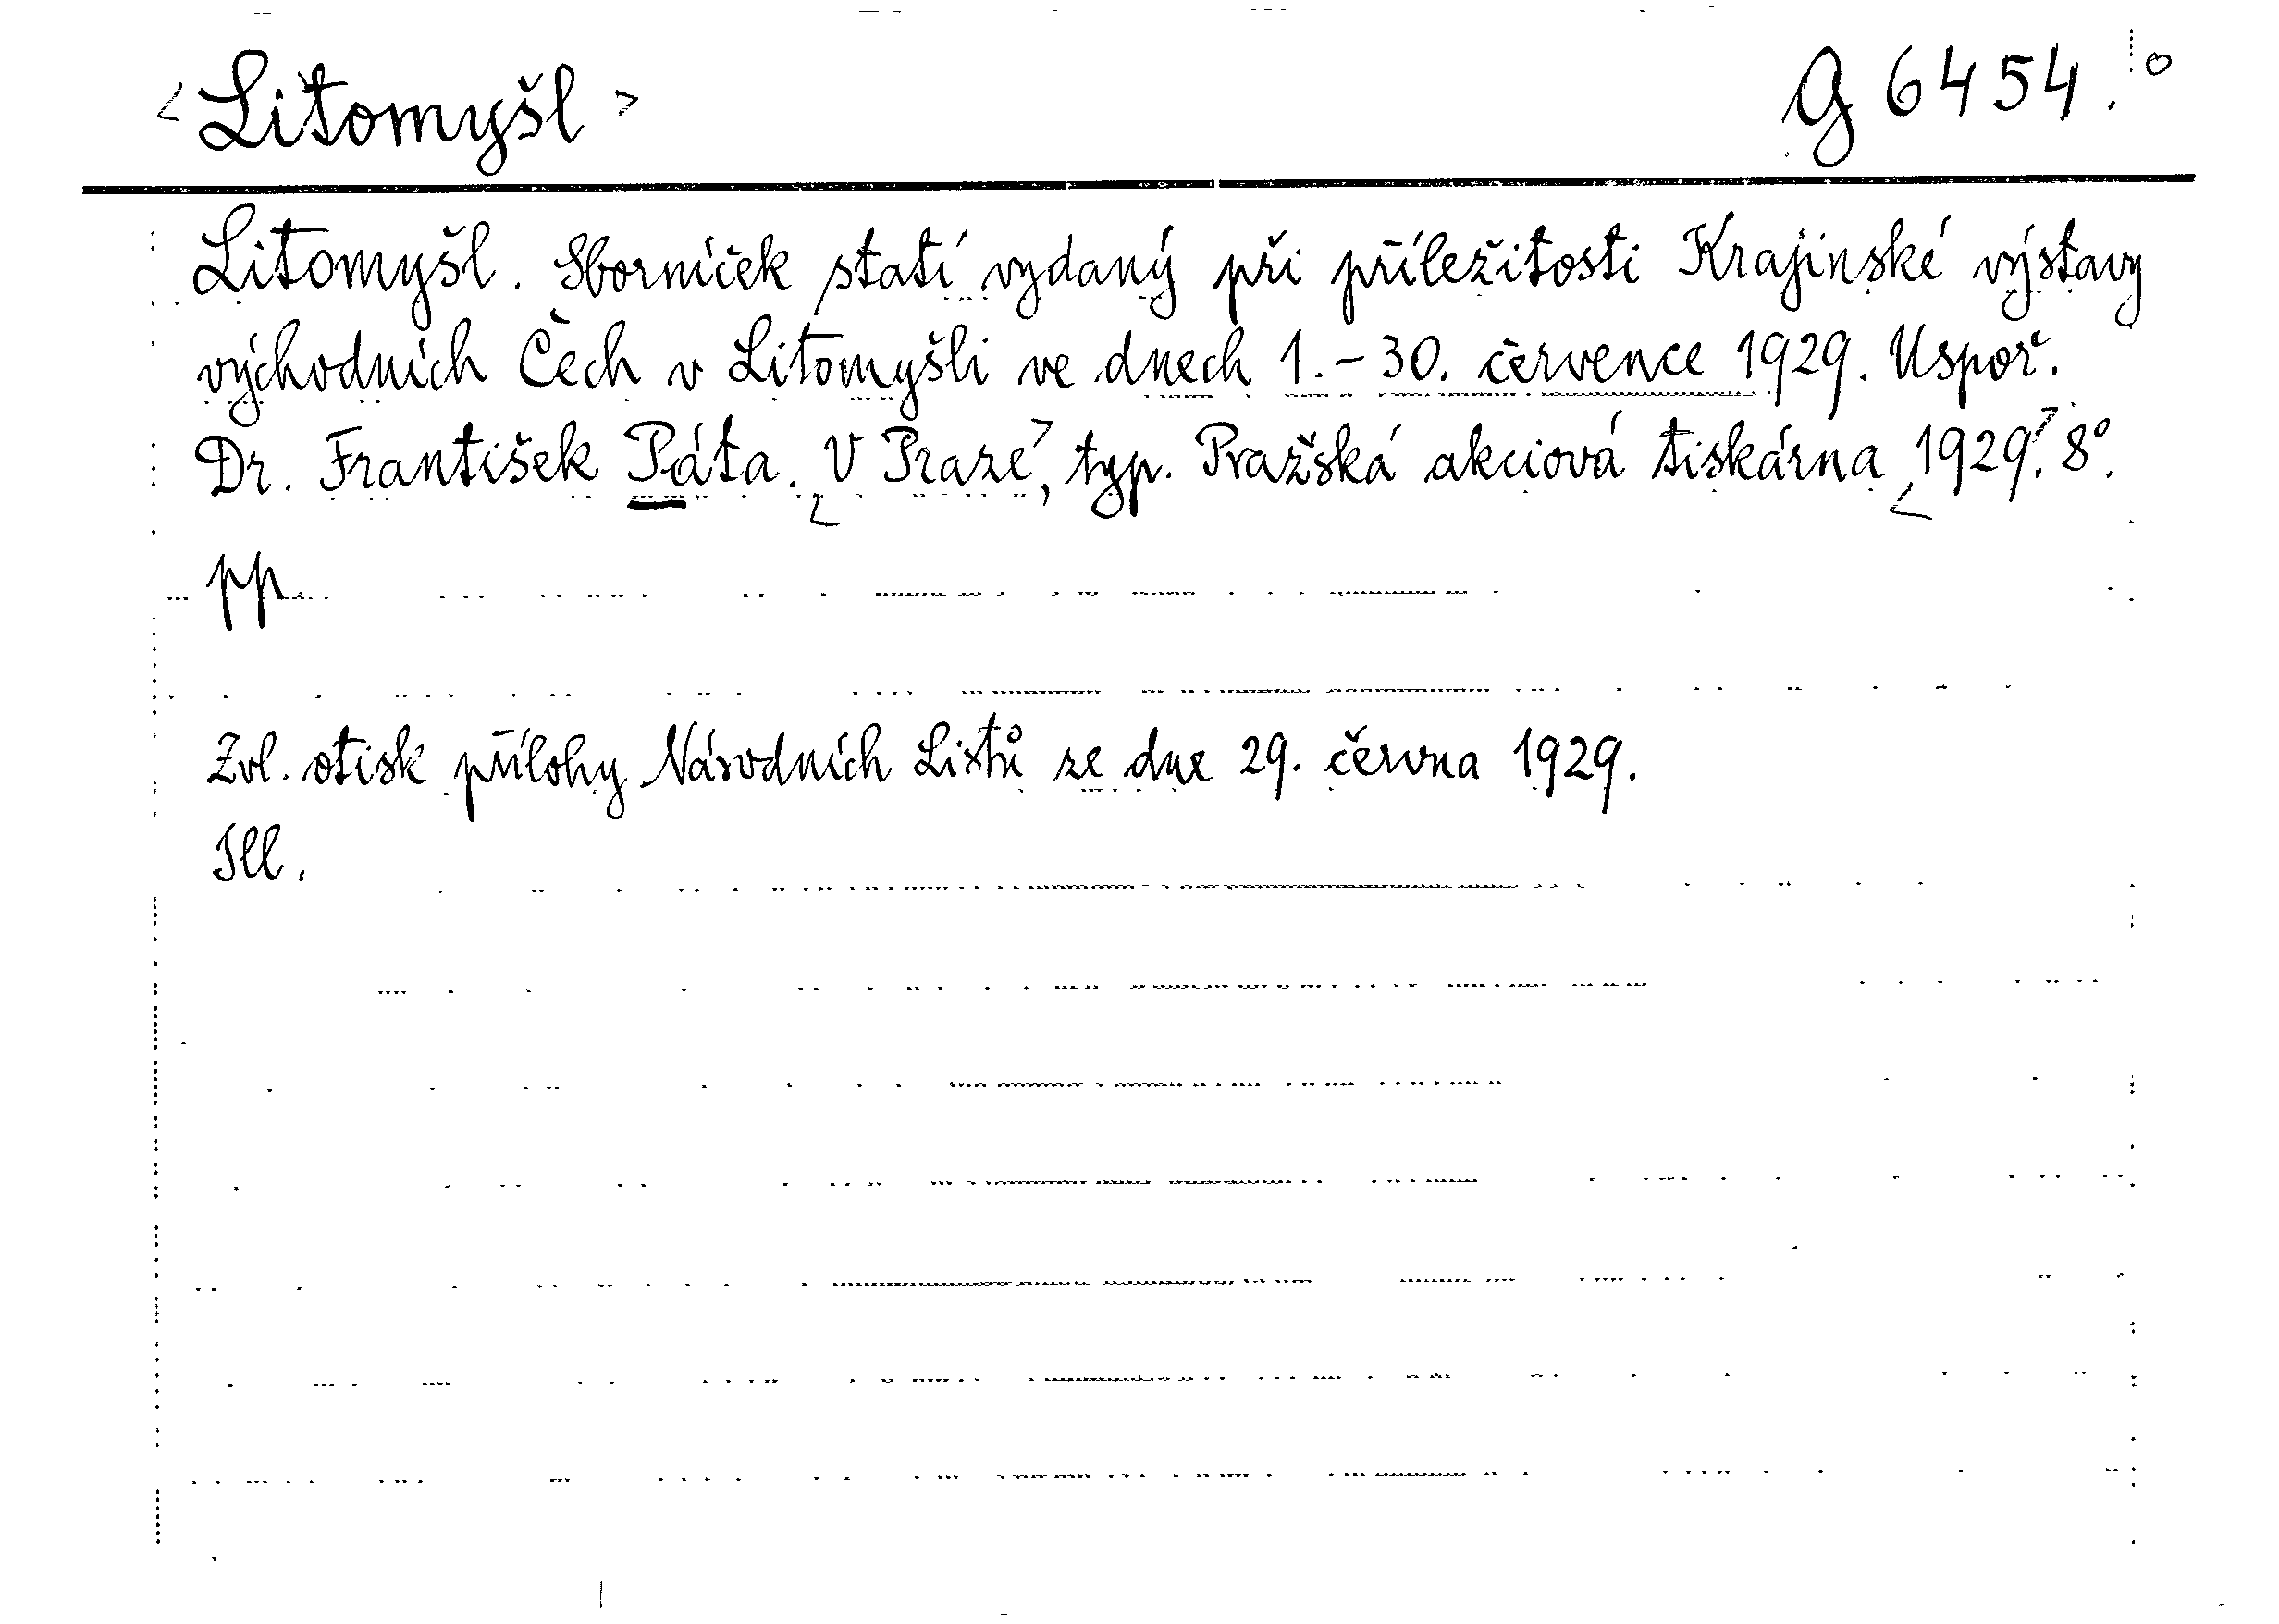 <Litomyšl> G 6454.
Litomyšl. Sborníček statí vydaný při příležitosti Krajinské výstavy
východních Čech v Litomyšli ve dnech 1.-30. července 1929. Uspoř.
Dr. František Páta. <V Praze>, typ. Pražská akciová tiskárna <1929.> 8°.
pp.
Zvl. otisk přílohy Národních Listů ze dne 29. června 1929.
Ill.